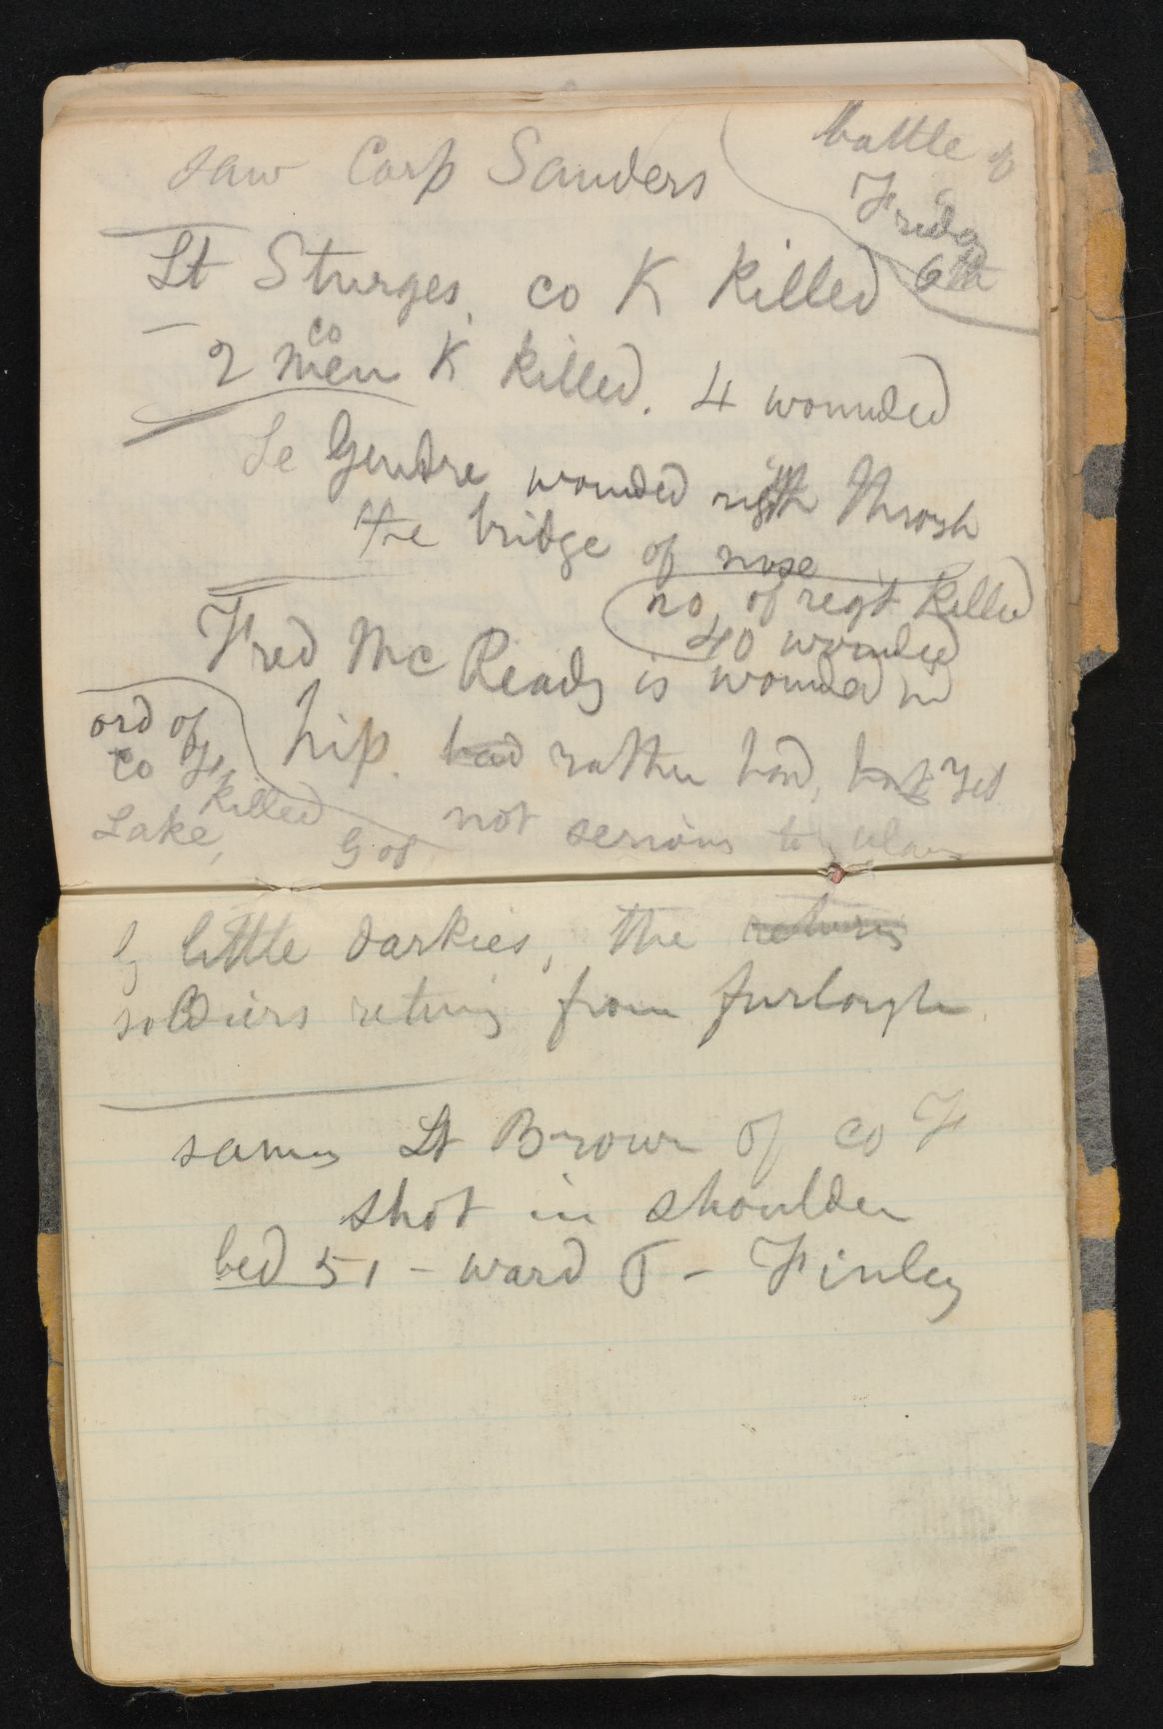 saw Corp Sanders
battle of
Friday
6th
Lt Sturges, co K killed
co
2 men K killed. 4 wounded
Le Gendre wounded through
the bridge of nose
no. of reg't killed
40 wounded
Fred Mc Ready is wounded in
hip. bad rather hard, but yet
not serious
ord of
Co F, killed
Lake,
God
by little darkies, the returng
soldiers returng from furlough
Lt Brown of co F
shot in shoulder
bed 51 - ward - Finley